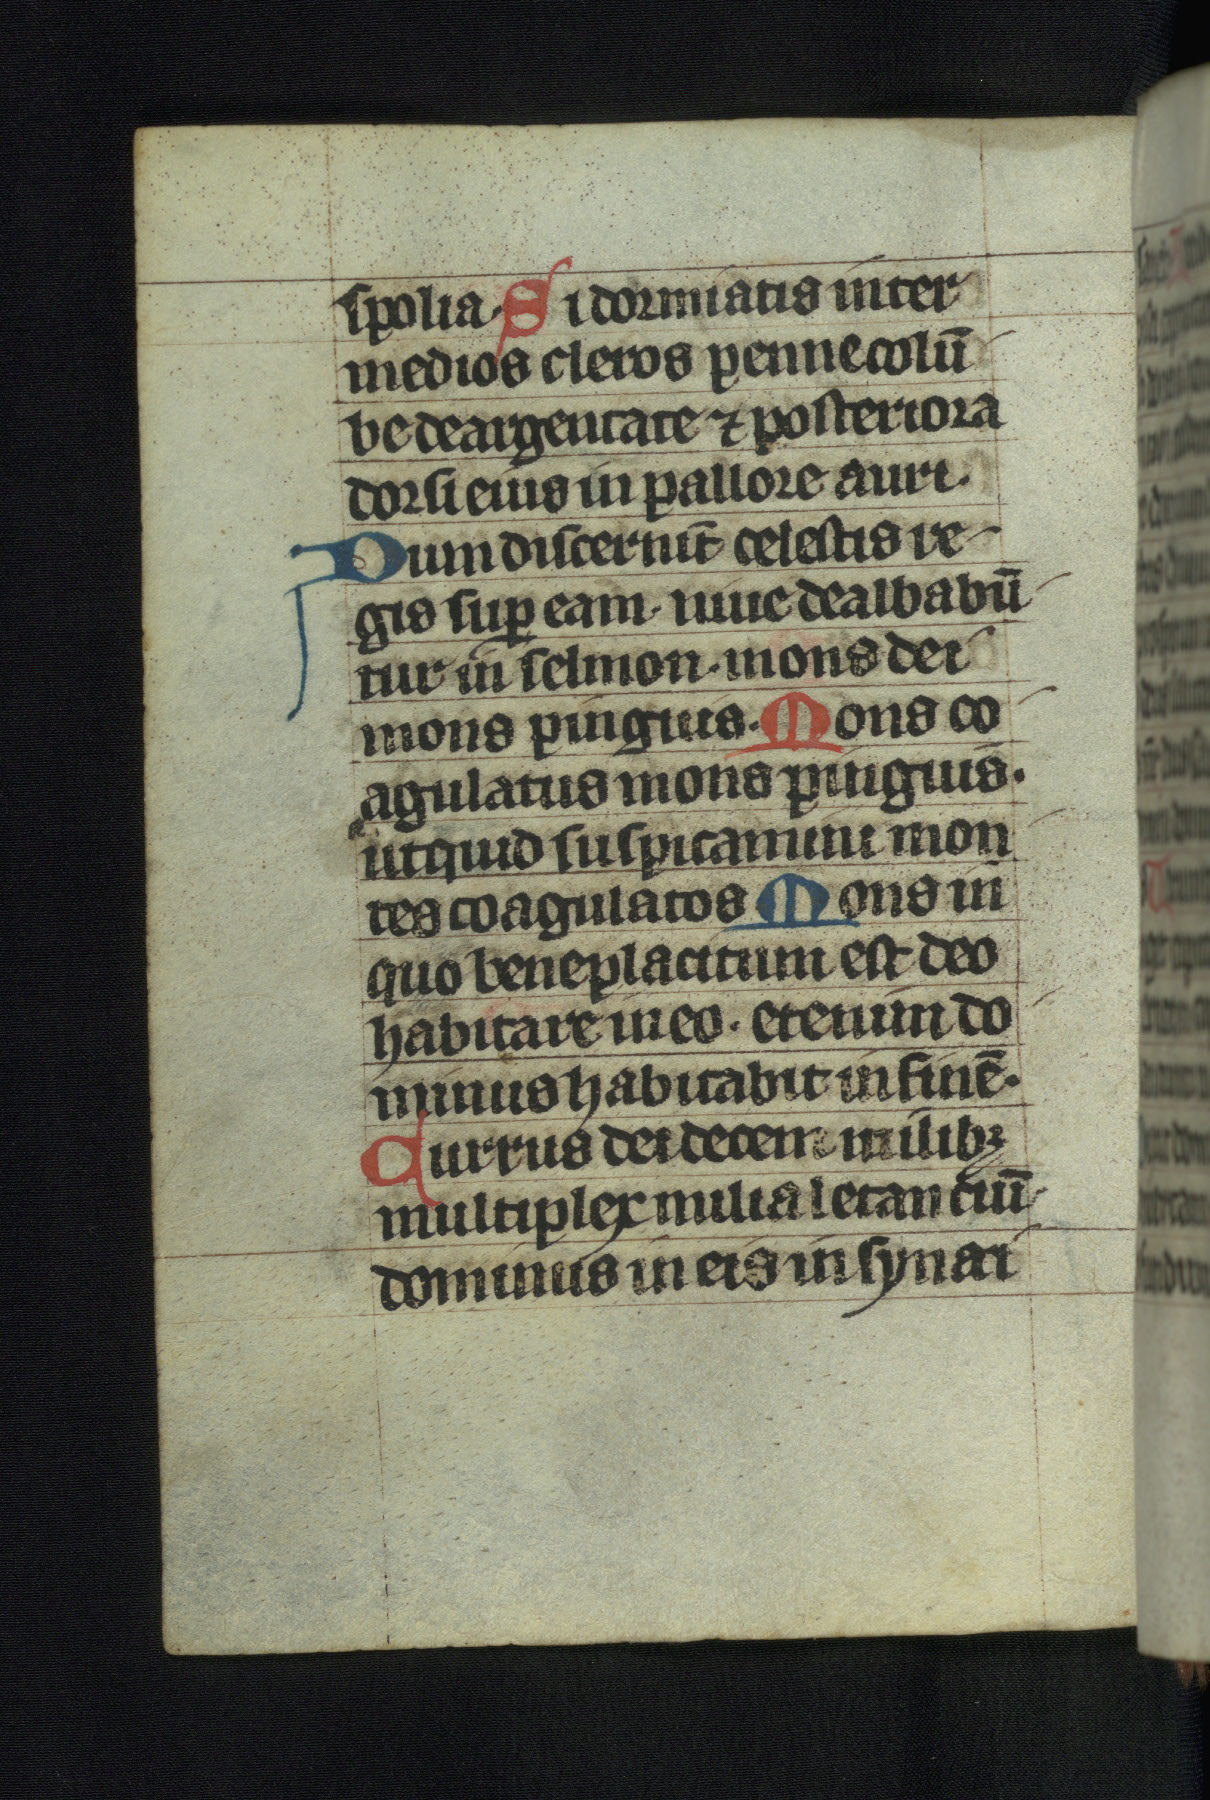 spolia. Si dormiatis inter
medios cleros penne colū
be deargentate ⁊ posteriora
dorsi eius in pallore auri.
Dum discernit celestis re
gis suꝑ eam. niue dealbabū
tur in selmon. mons dei
mons pinguis. Mons co
agulatus mons pinguis.
utquid suspicamini mon
tes coagulatos Mons in
quo beneplacitum est deo
habitare in eo. etenim do
minus habitabit in finē.
Currus dei decem milibꝫ
multiplex milia letantiū
dominus in eis in synai